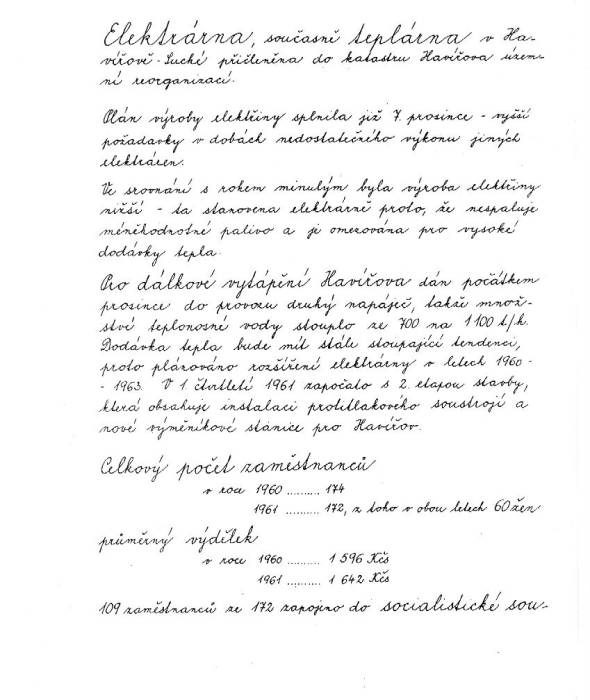 Elektrárna, současně teplárna v Ha-
vířově - Suché přičleněna do katastru Havířova územ-
ní reorganizací.
Plán výroby elektřiny splnila již 7. prosince - vyšší
požadavky v dobách nedostatečného výkonu jiných
elektráren.
Ve srovnání s rokem minulým byla výroba elektřiny
nižší - ta stanovena elektrárně proto, že nespaluje
méněhodnotné palivo a je omezována pro vysoké
dodávky tepla.
Pro dálkové vytápění Havířova dán počátkem
prosince do provozu druhý napáječ, takže množ-
ství teplonosné vody stouplo ze 700 na 1 100 t/h.
Dodávka tepla bude mít stále stoupající tendenci,
proto plánováno rozšíření elektrárny v letech 1960 -
- 1963. V 1 čtvrtletí 1961 započato s 2. etapou stavby,
která obsahuje instalaci protitlakového soustrojí a
nové výměníkové stanice pro Havířov.
Celkový počet zaměstnanců
v roce 1960 .......... 174
1961 .......... 172, z toho v obou letech 60 žen
průměrný výdělek
v roce 1960 .......... 1 596 Kčs
1961 .......... 1 642 Kčs
109 zaměstnanců ze 172 zapojeno do socialistické sou-